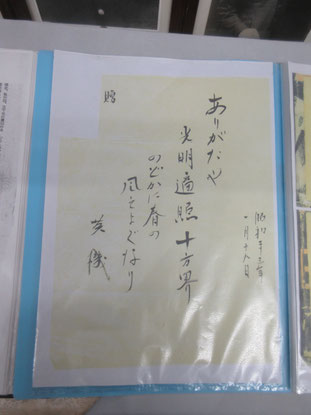 昭和二十三年
一月十八日
ありがたや
光明遍照十方界
のどかに春の
風そよぐなり
英機
贈